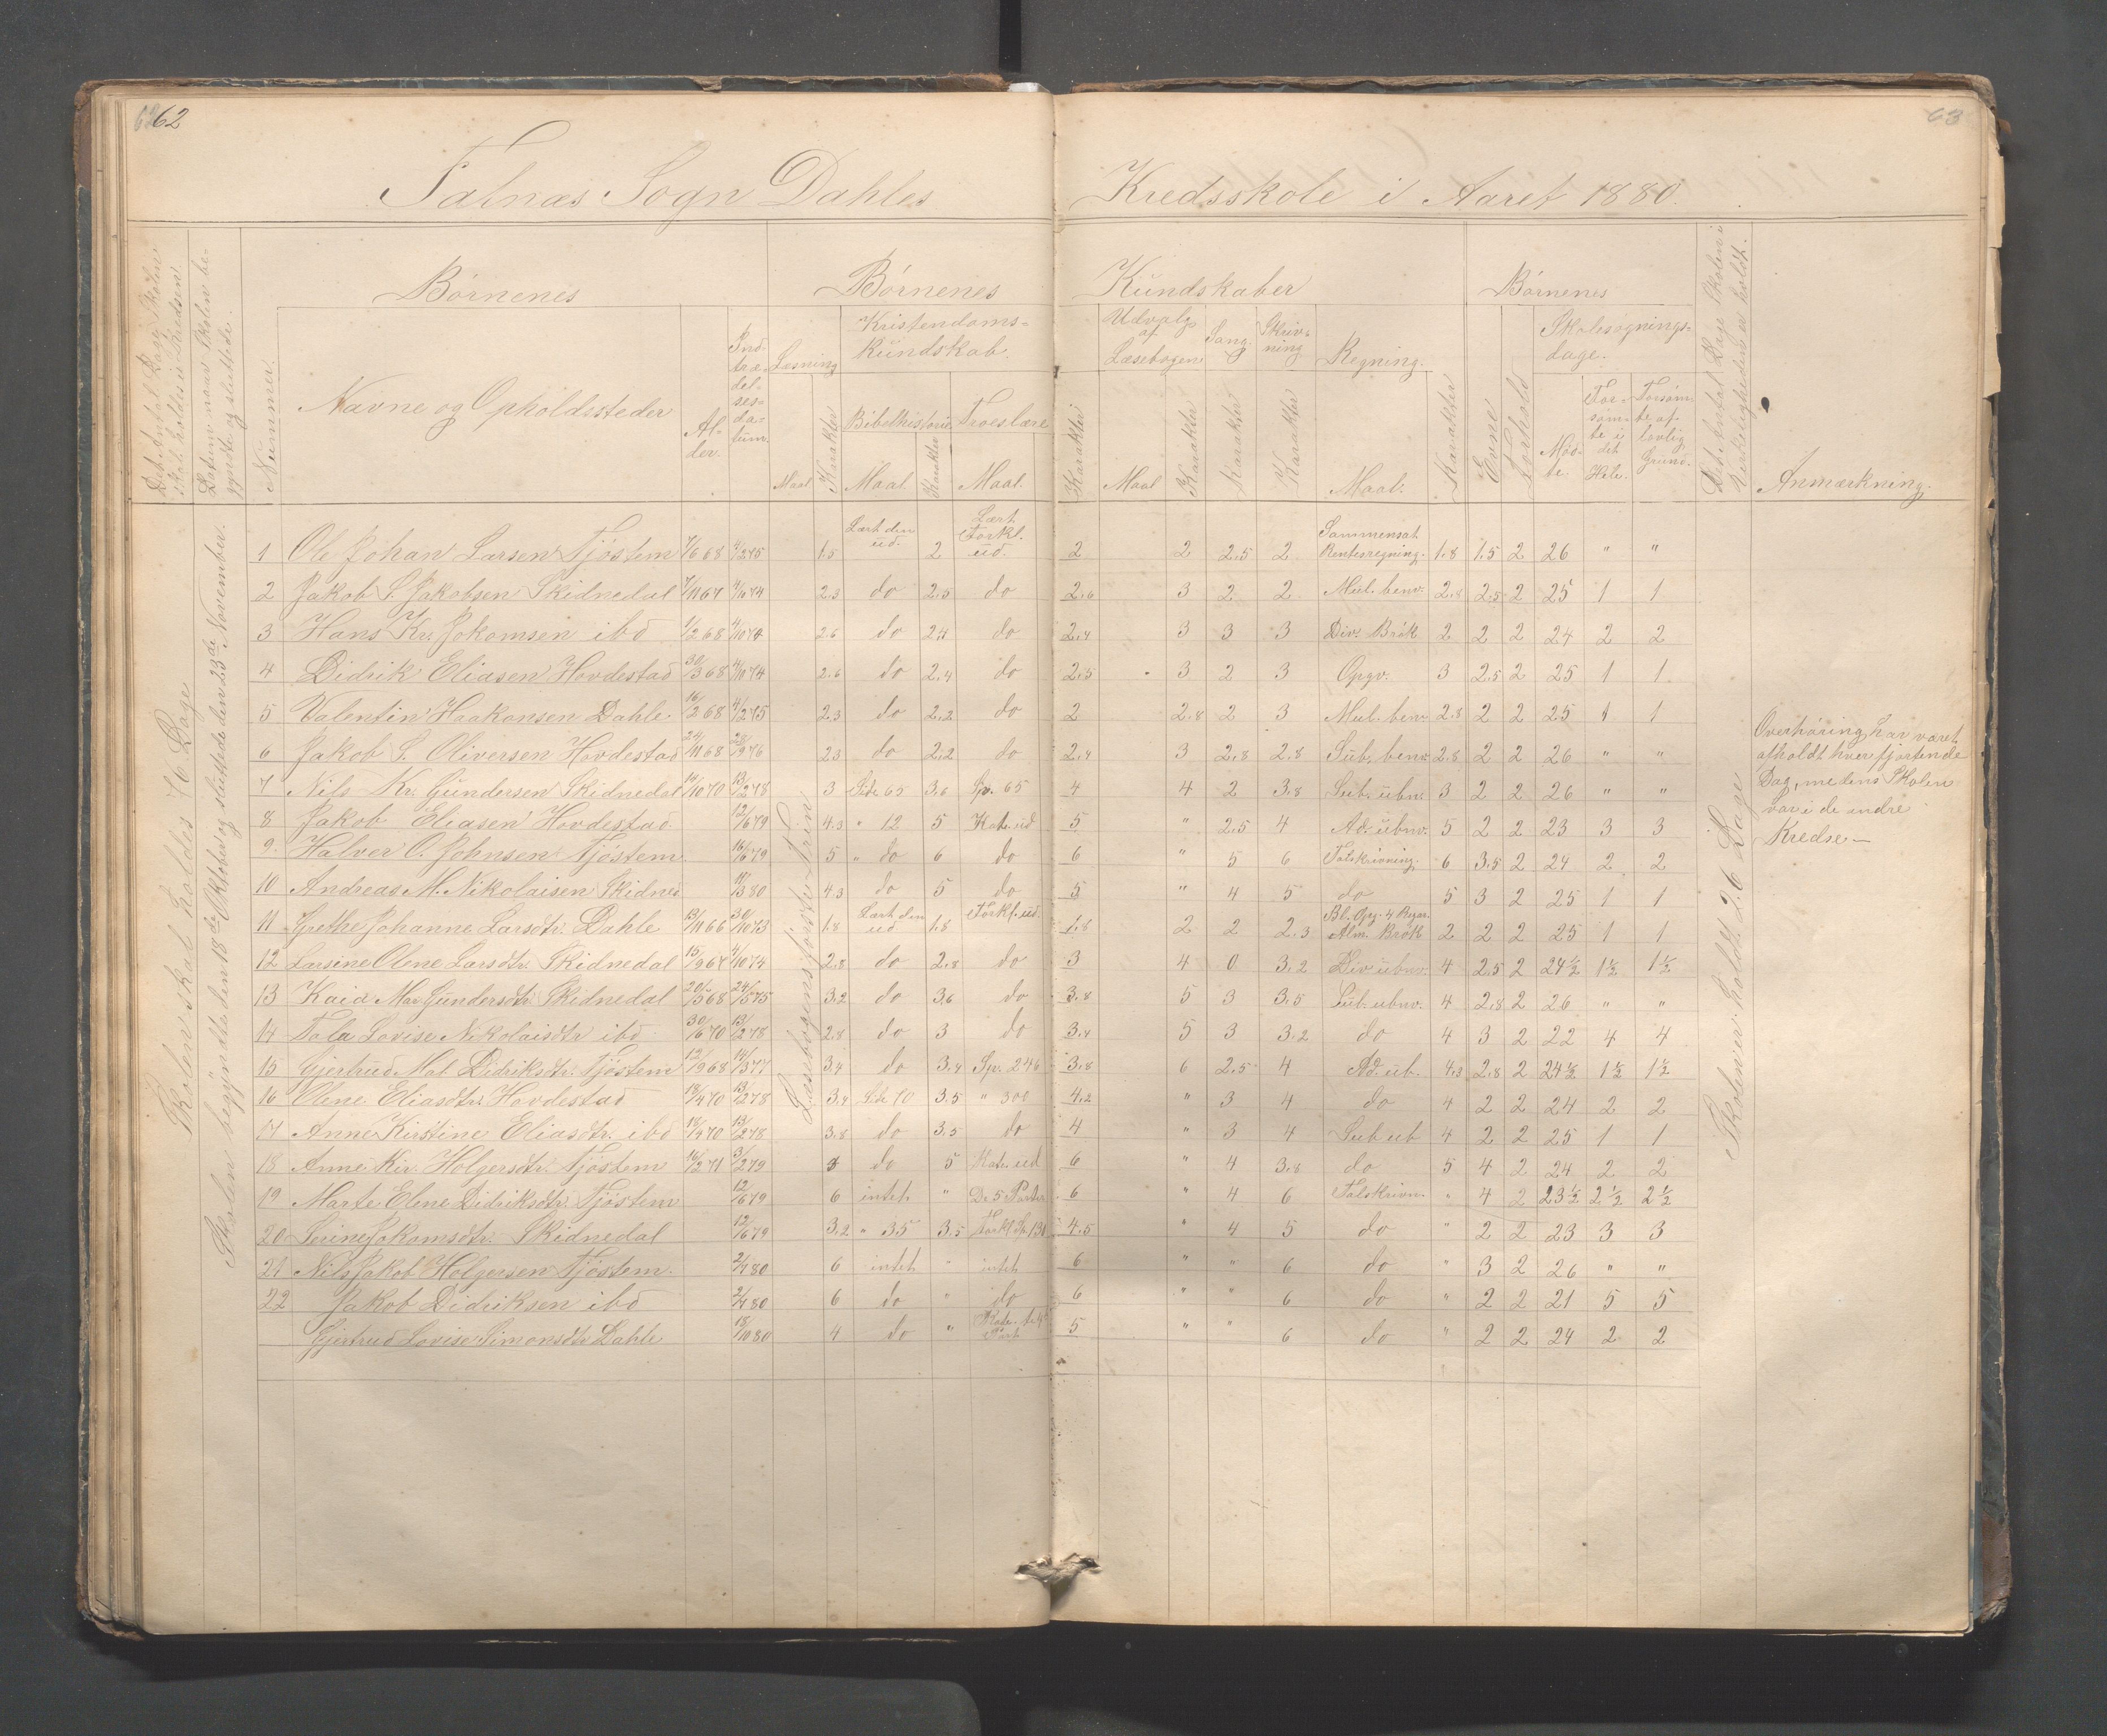 62 62
63
Falnæs Sogn Dahles Kredsskole i Aaret 1880.
Det Antal Dage Skolen skal holdes i Kredsen.
Datum naar Skolen begyndte og sluttede.
Børnenes
Børnenes Kundskaber
Børnenes
Skolesøgningsdage.
Det Antal Dage Skolen i Virkeligheden er holdt.
Anmærkning.
Nummer.
Navne og Opholdssteder
Alder.
Indtrædelsesdatum.
Læsning
Kristendomskundskab.
Bibelhistorie
Troeslære
Udvalg af Læsebogen
Sang.
Skrivning
Regning.
Maal Karakter Maal Karakter Maal. Karakter Maal Karakter Karakter Karakter Maal. Karakter
Evne
Forhold
Mødte.
Forsømte i det Hele.
Forsømte af lovlig Grund.
Skolen skal holdes 46 Dage
Skolen begyndte den 18de Oktober og sluttede den 23de November.
Læsebogens første Trin
1 Ole Johan Larsen Tjöstem 7/6 68 4/2 75 1.5 Lært den ud. 2 Lært Forkl. ud 2 2 2.5 2 Sammensat Rentesregning. 1.8 1.5 2 26 " "
2 Jakob S. Jakobsen Skidnedal 7/11 67 4/10 74 2.3 do 2.5 do 2.6 3 2 2 Mul. benv. 2.8 2.5 2 25 1 1
3 Hans Kr. Jokomsen ibd 1/2 68 4/10 74 2.6 do 2.4 do 2.4 3 3 3 Div. Brök 2 2 2 24 2 2
4 Didrik Eliasen Hovdestad 30/3 68 4/10 74 2.6 do 2.4 do 2.5 3 2 3 Opgv. 3 2.5 2 25 1 1
5 Valentin Haakonsen Dahle 16/2 68 4/2 75 2.3 do 2.2 do 2 2.8 2 3 Mul. benv. 2.8 2 2 25 1 1
6 Jakob S. Oliversen Hovdestad 24/11 68 28/9 76 2.3 do 2.2 do 2.4 3 2.8 2.8 Sub. benv. 2.8 2 2 26 " "
7 Nils Kr. Gundersen Skidnedal 14/10 70 13/2 78 3 Side 65 3.6 Sp. 65 4 4 2 3.8 Sub. ubnv. 3 2 2 26 " "
8 Jakob Eliasen Hovdestad 12/6 79 4.3 " 12 5 Kate. ud 5 " 2.5 4 Ad. ubnv. 5 2 2 23 3 3
9. Halver O. Johnsen Tjöstem. 16/6 79 5 " do 6 do 6 " 5 6 Talskrivning. 6 3.5 2 24 2 2
10 Andreas M. Nikolaisen Skidned 11/3 80 4.3 do 5 do 5 " 4 5 do 5 3 2 25 1 1
11 Grethe Johanne Larsdtr. Dahle 13/11 66 30/10 73 1.8 Lært den ud 1.8 Forkl. ud. 1.8 2 2 2.3 Bl. Opg. 4 Regar. Alm. Brök 2 2 2 25 1 1
12 Larsine Olene Larsdtr. Skidnedal 15/9 67 4/10 74 2.8 do 2.8 do 3 4 0 3.2 Div ubnv. 4 2.5 2 24½ 1½ 1½
13 Kaia Mar. Gundersdtr. Skidnedal 20/5 68 24/5 75 3.2 do 3.6 do 3.8 5 3 3.5 Sub. ubnv. 4 2.8 2 26 " "
14 Tala Lovise Nikolaisdtr ibd 30/6 70 13/2 78 2.8 do 3 do 3.4 5 3 3.2 do 4 3 2 22 4 4
15 Gjertrud Mal. Didriksdtr. Tjöstem 12/9 68 14/3 77 3.4 do 3.4 Sp. 246 3.8 6 2.5 4 Ad. ub. 4.3 2.8 2 24½ 1½ 1½
16 Olene Eliasdtr. Hovdestad 18/4 70 13/2 78 3.4 Side 70 3.5 " 300 4.2 " 3 4 do 4 2 2 24 2 2
17 Anne Kirstine Eliasdtr. ibd 18/4 70 13/2 78 3.8 do 3.5 do 4 " 3 4 Sub ub 4 2 2 25 1 1
18 Anne Kir. Holgersdtr. Tjöstem 16/2 71 3/2 79 do 5 Kate. ud 6 " 4 3.8 do 5 4 2 24 2 2
19 Marte Elene Didriksdtr. Tjöstem 12/6 79 6 intet " De 5 Parter 6 " 4 6 Talskrivn. " 4 2 23½ 2½ 2½
20 Serine Jokomsdtr. Skidnedal 12/6 79 3.2 " 35 3.5 Forkl Sp. 130 4.5 " 4 5 do " 2 2 23 3 3
21 Nils Jakob Holgersen Tjöstem. 2/4 80 6 intet " intet 6 " " 6 do " 3 2 26 " "
22 Jakob Didriksen ibd 2/4 80 6 do " do 6 " " 6 do " 2 2 21 5 5
Gjertrud Lovise Simonsdtr Dahle 18/10 80 4 do " Kate. til 4 Part 5 " " 6 do " 2 2 24 2 2
Skolen er holdt 26 Dage
Overhöring har været
afholdt hver fjortende
Dag, medens Skolen
var i de andre
Kredse. —